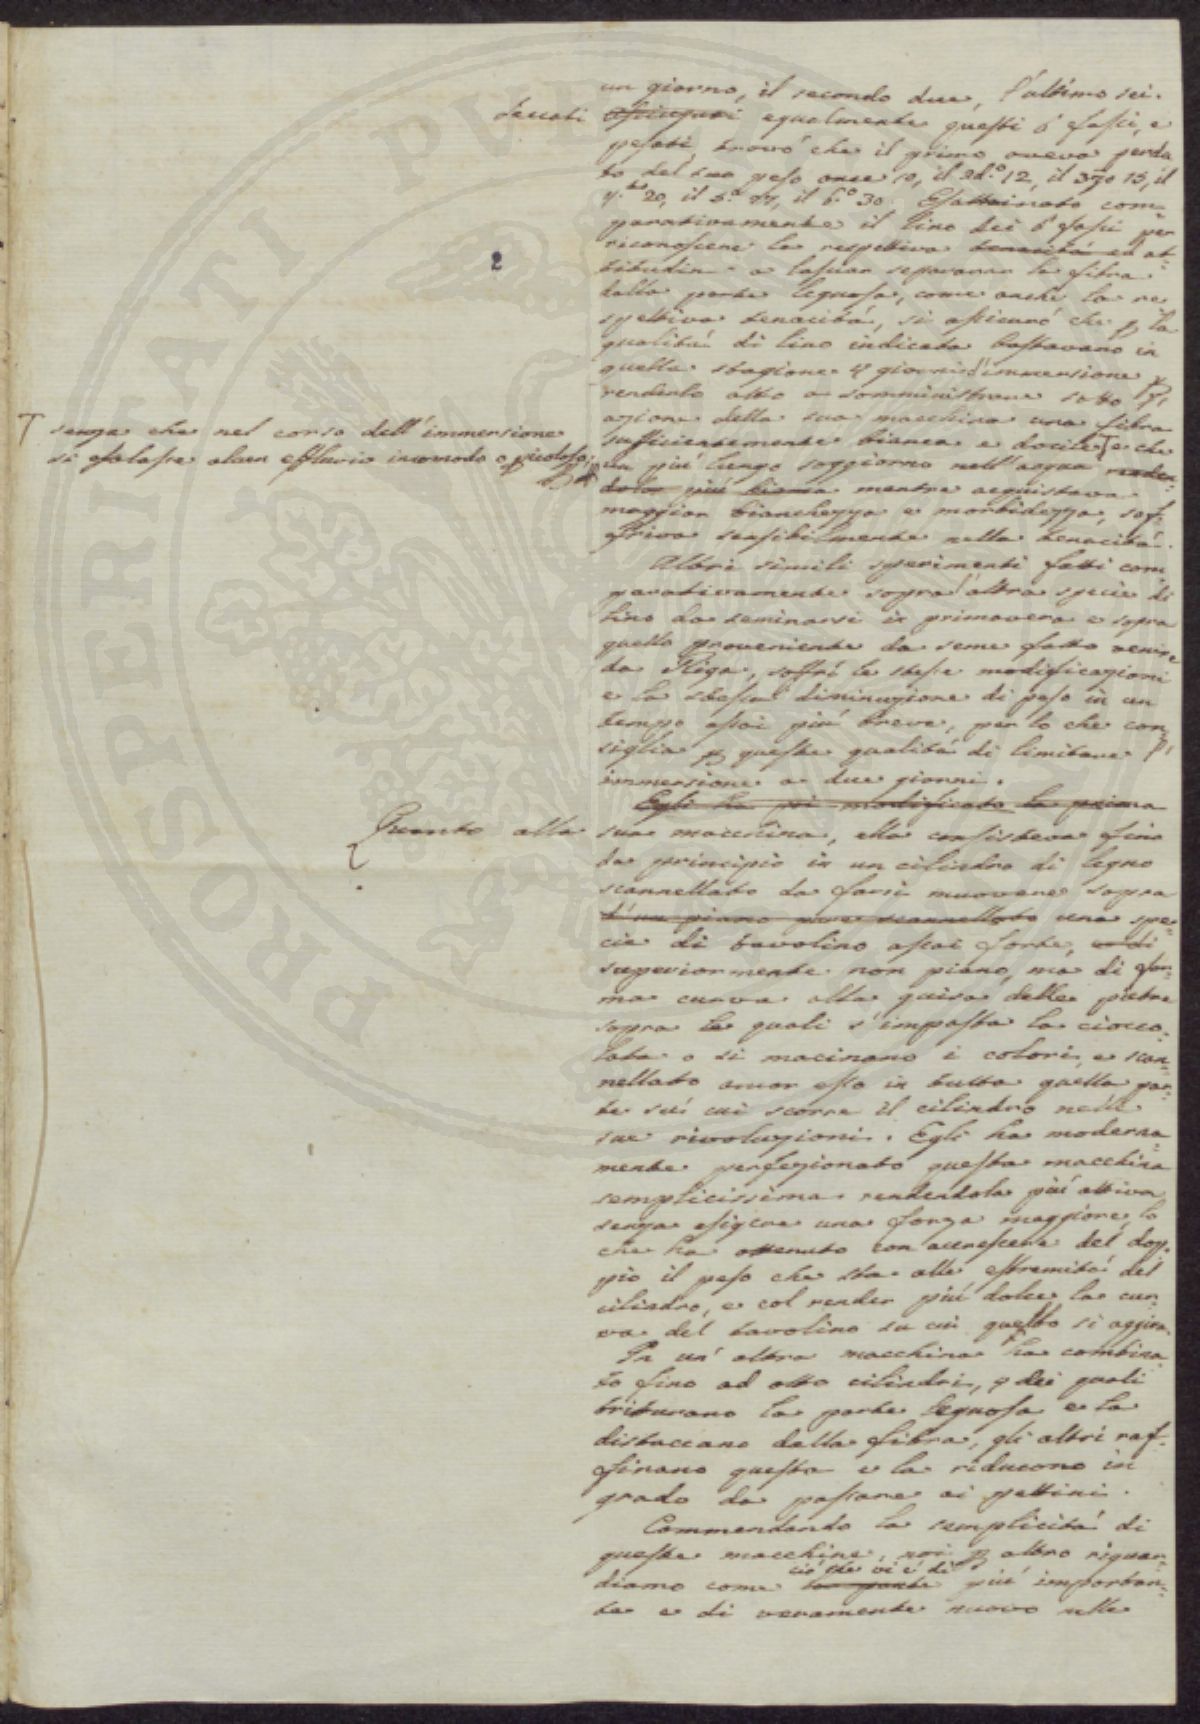 un giorno, il secondo due, l'ultimo sei.
Seccati asciugati egualmente questi 6 fasci, e
pesati, trovò che il primo aveva perdu
to del suo peso once 10, il 2d.º 12, il 3zo 15, il
4.to 20, il 5.º 27, il 6.º 30. Esaminato com=
parativamente il lino dei 6 fasci per
riconoscere la respettiva tenacità ed at=
titudine a lasciar separarar la fibra
dalla parte legnosa, come anche la re
spettiva tenacità, si assicurò che p la
qualità di lino indicata bastavano in
quella stagione 4 giorni d'immersione p
renderlo atto a somministrare sotto l'
azione della sua macchina una fibra
sufficientemente bianca e docile T e che
T senza che nel corso dell'immersione
si esalasse alcun effluvio incomodo o pericoloso;
un più lungo soggiorno nell'acqua renden
dola più bianca mentre acquistava
maggior bianchezza e morbidezza, sof=
friva sensibilmente nella tenacità.
Altri simili sperimenti fatti com
parativamente sopra altra specie di
lino da seminarsi in primavera e sopra
quello proveniente da seme fatto venire
da Riga, soffrì le stesse modificazioni
e la stessa diminuzione di peso in un
tempo assai più breve, per lo che con
siglia p queste qualità di limitare l'
immersione a due giorni.
Egli ha poi modificato la prima
Quanto alla sua macchina, ella consisteva fino
da principio in un cilindro di legno
scannellato da farsi muovere sopra
d'un piano pure scannellato una spe=
cie di tavolino assai forte, ed di
superiormente non piano, ma di for=
ma curva alla guisa delle pietre
sopra le quali s'impasta la ciocco=
lata o si macinano i colori, e scan=
nellato ancor esso in tutta quella par=
te su cui scorre il cilindro nelle
sue rivoluzioni. Egli ha moderna
mente perfezionato questa macchina
semplicissima rendendola più attiva
senza esigere una forza maggiore, lo
che ha ottenuto con accrescere del dop=
pio il peso che sta alle estremità del
cilindro, e col render più dolce la cur=
va del tavolino su cui quello si aggira.
In un'altra macchina ha combina
to fino ad otto cilindri, 4 dei quali
triturano la parte legnosa e la
distaccano dalla fibra, gli altri raf=
finano questa e la riducono in
grado da passare ai pettini.
Commendando la semplicità di
queste macchine, noi p altro riguar=
ciò che vi è di
diamo come la parte più importan=
te e di veramente nuovo nelle
2